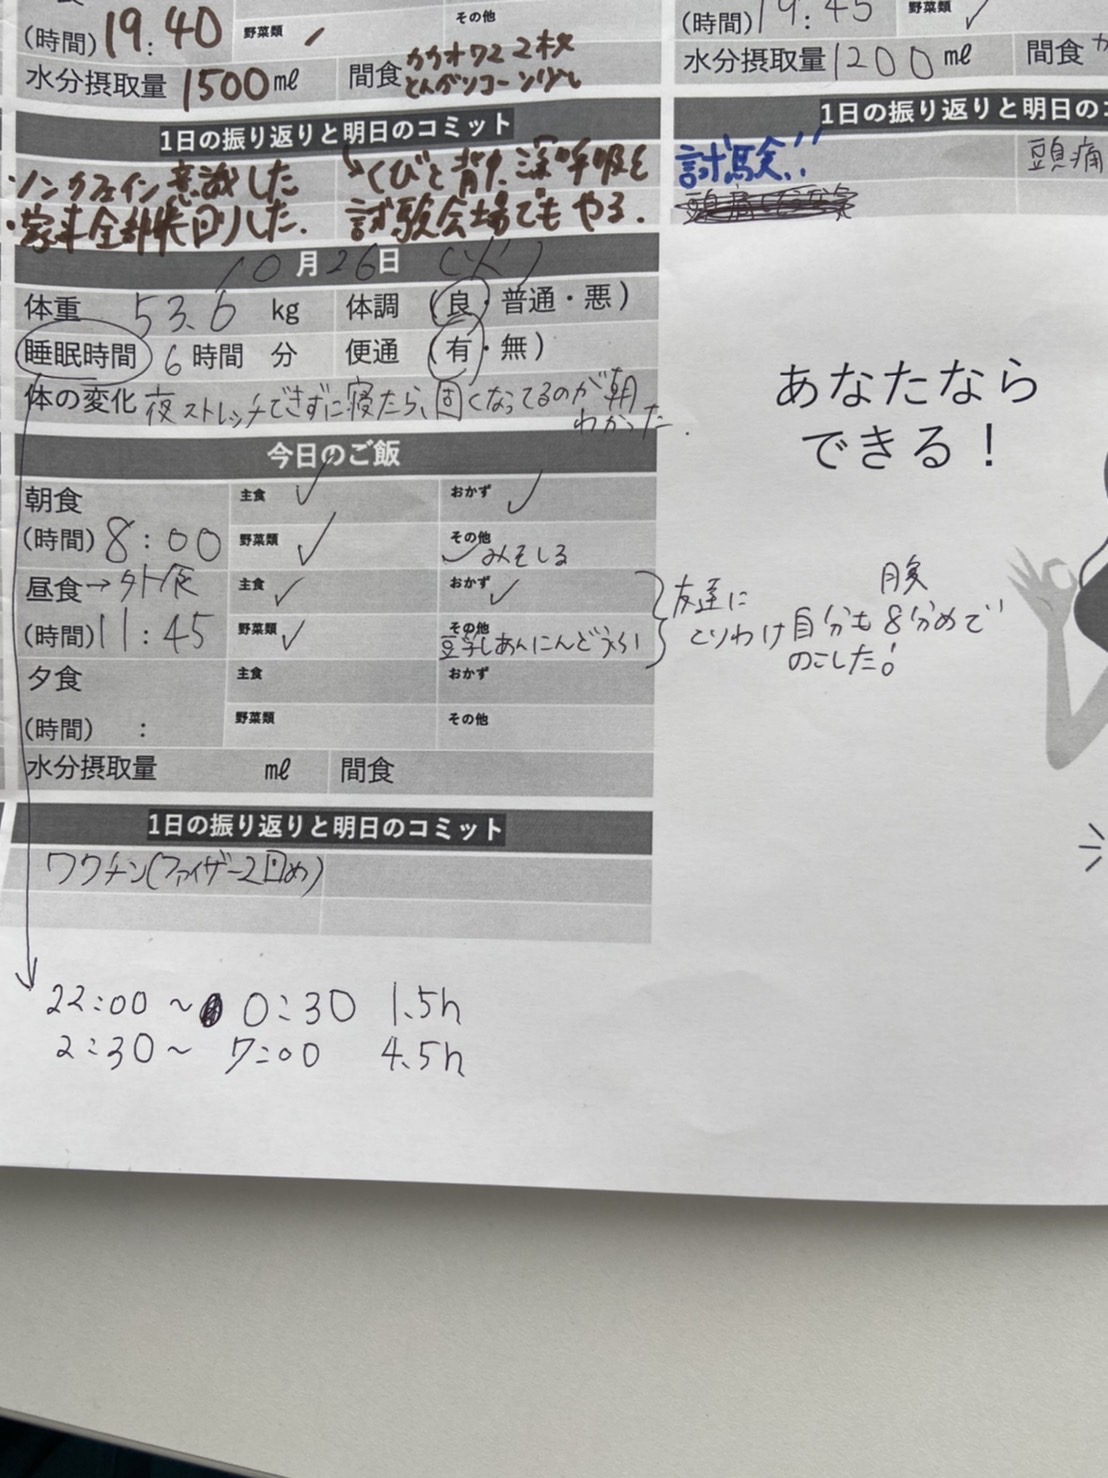 (時間) 19:40 野菜類 その他
水分摂取量 1500 ml 間食 カカオ72 2枚
とんがりコーン少し
1日の振り返りと明日のコミット
・ノンカフェイン意識した くびと背中、深呼吸を
・家事全部先回りした. 試験会場でもやる.
(時間) 19:45 野菜類 ✓
水分摂取量 1200 ml 間食
1日の振り返りと明日のコ
試験!! 頭痛
10月26日 (火)
体重 53.6 kg 体調 (良・普通・悪)
睡眠時間 6時間 分 便通 (有・無)
体の変化 夜ストレッチできずに寝たら、固くなってるのが朝
わかった.
今日のご飯
朝食 主食 ✓ おかず ✓
(時間) 8:00 野菜類 ✓ その他 ✓みそしる
昼食→外食 主食 ✓ おかず ✓
(時間) 11:45 野菜類 ✓ その他
豆乳しあんにんどうふ
友達に
とりわけ自分も腹8分めで
のこした!
夕食 主食 おかず
(時間) : 野菜類 その他
水分摂取量 ml 間食
1日の振り返りと明日のコミット
ワクチン(ファイザー2回め)
22:00 ~ 0:30 1.5h
2:30 ~ 7:00 4.5h
あなたなら
できる!